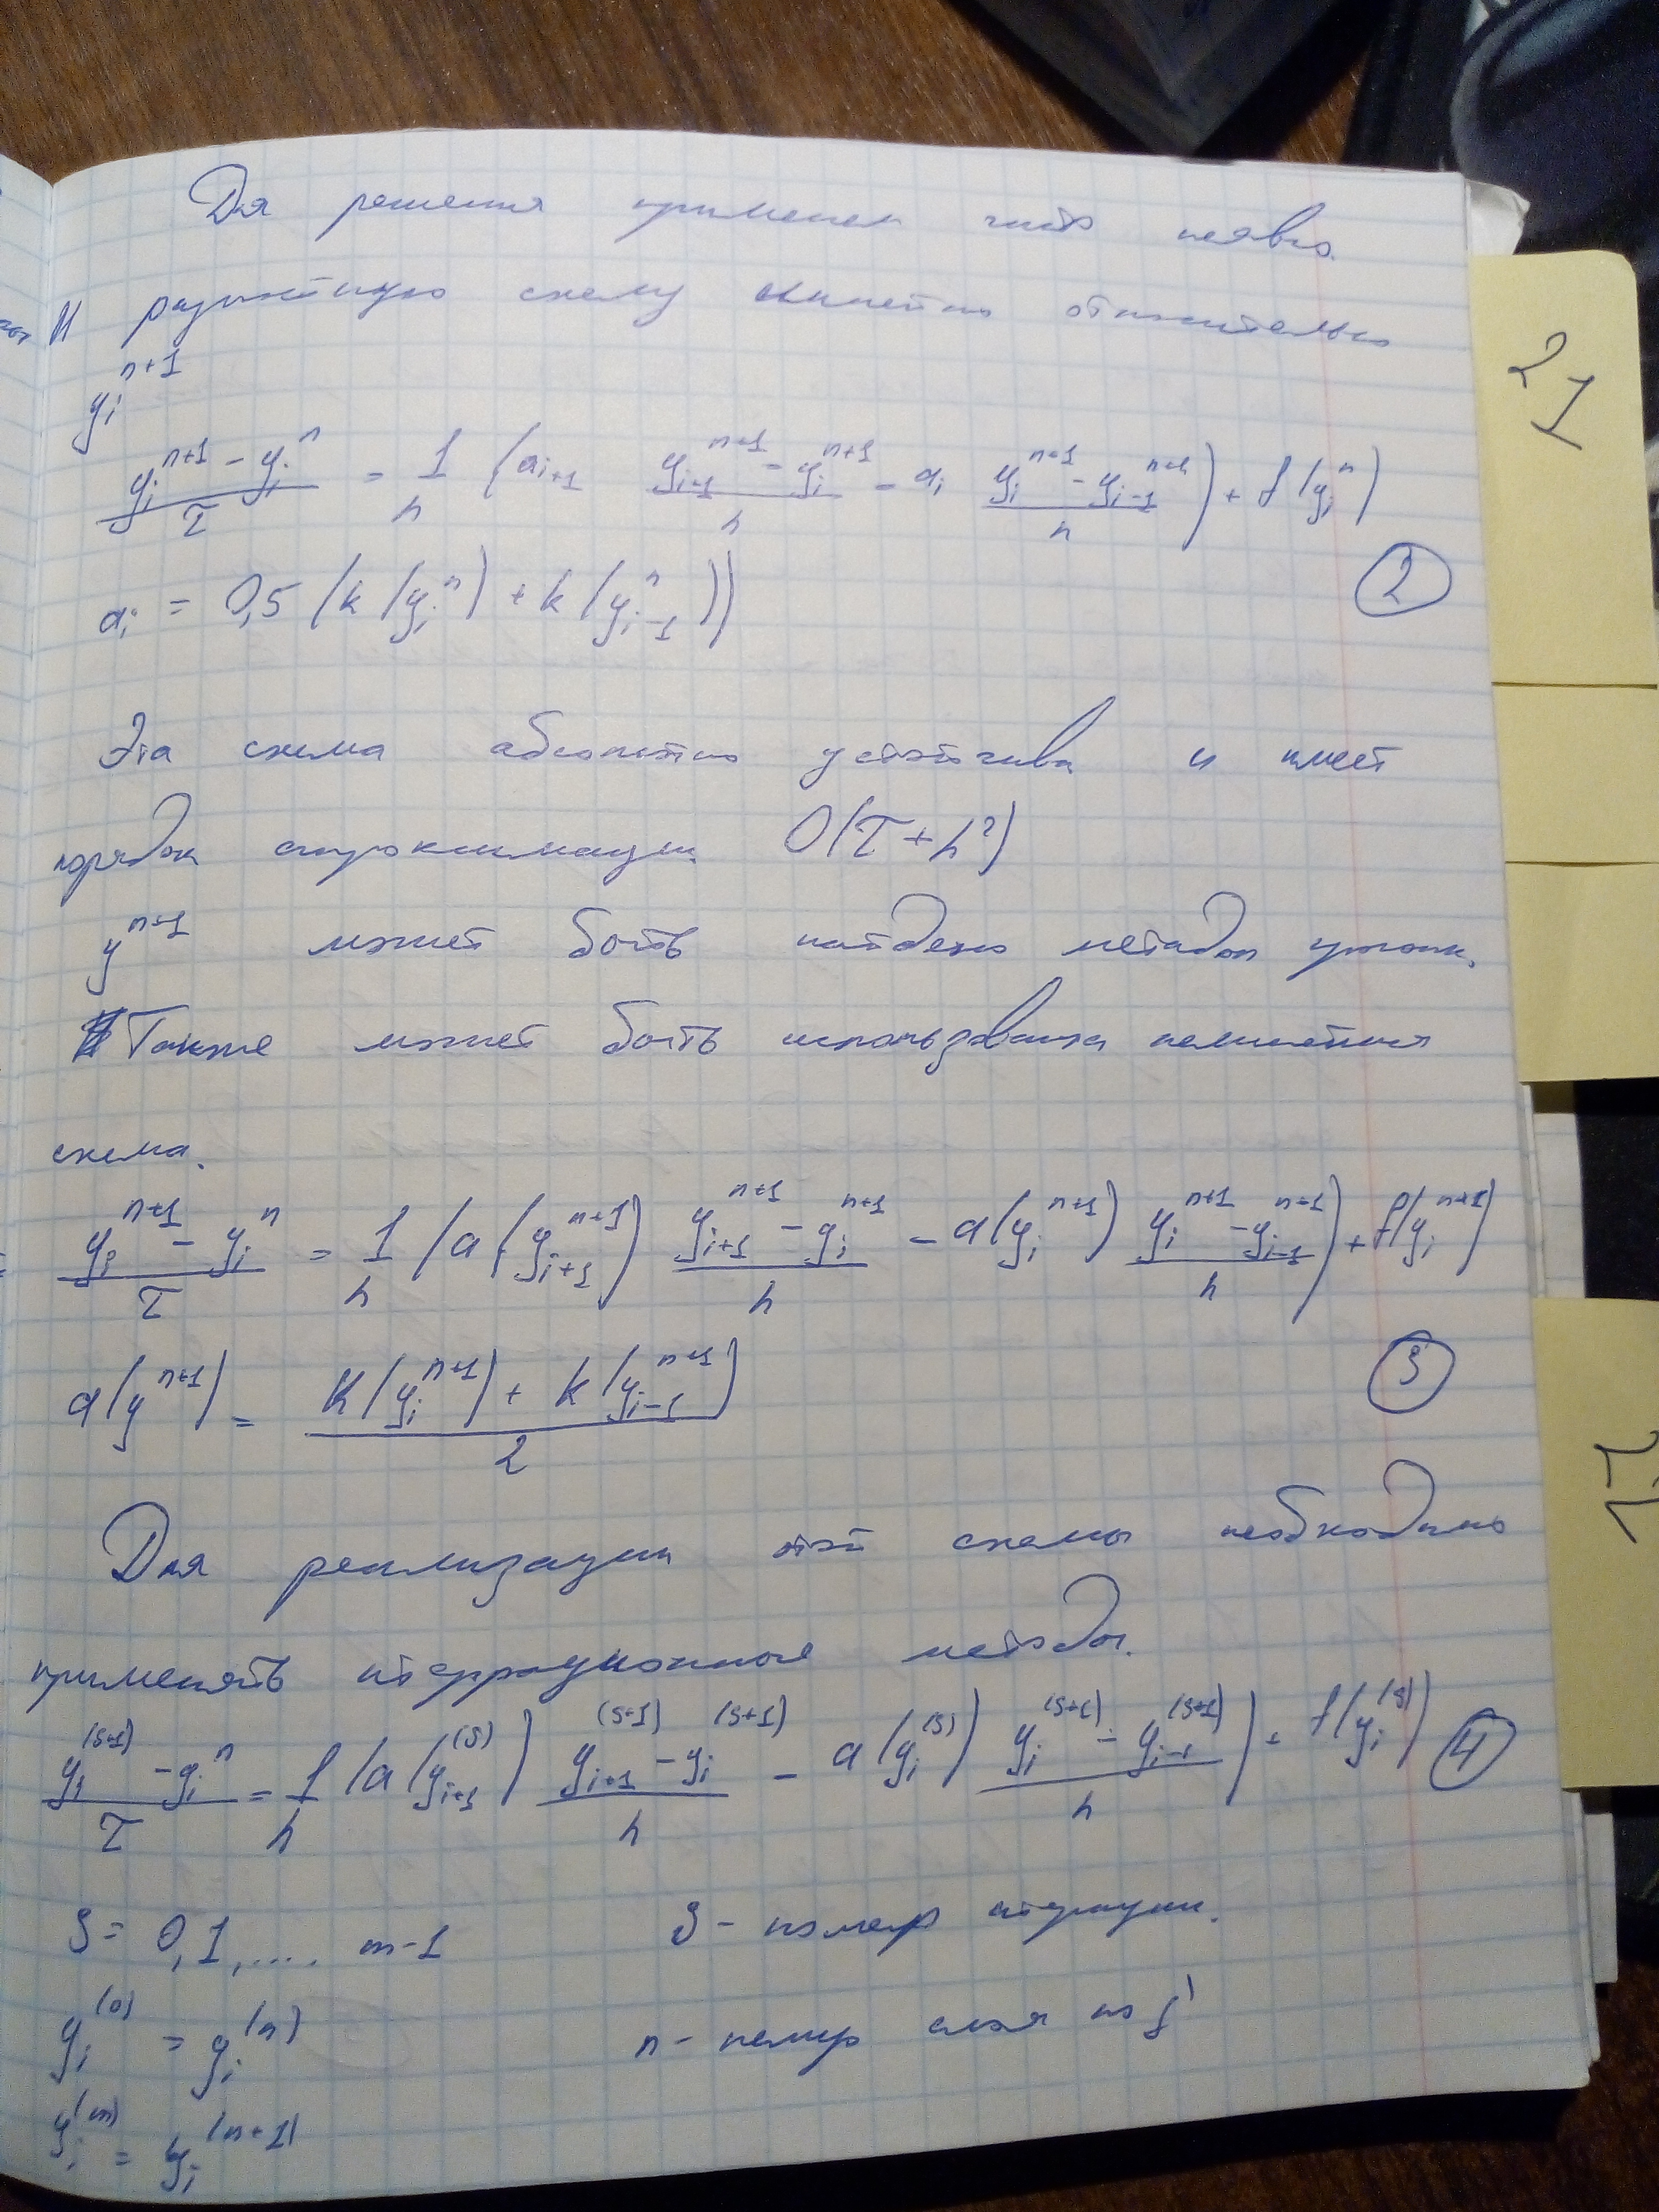 Для решения применен чисто неявн.
разностную схему линейно относительно
y_i^{n+1}
\frac{y_i^{n+1} - y_i^n}{τ} = \frac{1}{h} (a_{i+1} \frac{y_{i+1}^{n+1} - y_i^{n+1}}{h} - a_i \frac{y_i^{n+1} - y_{i-1}^{n+1}}{h}) + f(y_i^n)
a_i = 0,5 (k(y_i^n) + k(y_{i-1}^n)) (2)
Эта схема абсолютно устойчива и имеет
порядок аппроксимации O(τ + h^2)
y^{n+1} может быть найдено методом прогонк.
Также может быть использована нелинейная
схема.
\frac{y_i^{n+1} - y_i^n}{τ} = \frac{1}{h} (a(y_{i+1}^{n+1}) \frac{y_{i+1}^{n+1} - y_i^{n+1}}{h} - a(y_i^{n+1}) \frac{y_i^{n+1} - y_{i-1}^{n+1}}{h}) + f(y_i^{n+1})
a(y^{n+1}) = \frac{k(y_i^{n+1}) + k(y_{i-1}^{n+1})}{2} (3)
Для реализации этой схемы необходимо
применять итеррационные методы.
\frac{y_i^{(s+1)} - y_i^n}{τ} = \frac{1}{h} (a(y_{i+1}^{(s)}) \frac{y_{i+1}^{(s+1)} - y_i^{(s+1)}}{h} - a(y_i^{(s)}) \frac{y_i^{(s+1)} - y_{i-1}^{(s+1)}}{h}) + f(y_i^{(s)}) (4)
s = 0,1,.... m-1 s - номер итерации.
y_i^{(0)} = y_i^{(n)} n - номер слоя по
y_i^{(m)} = y_i^{(n+1)}
21